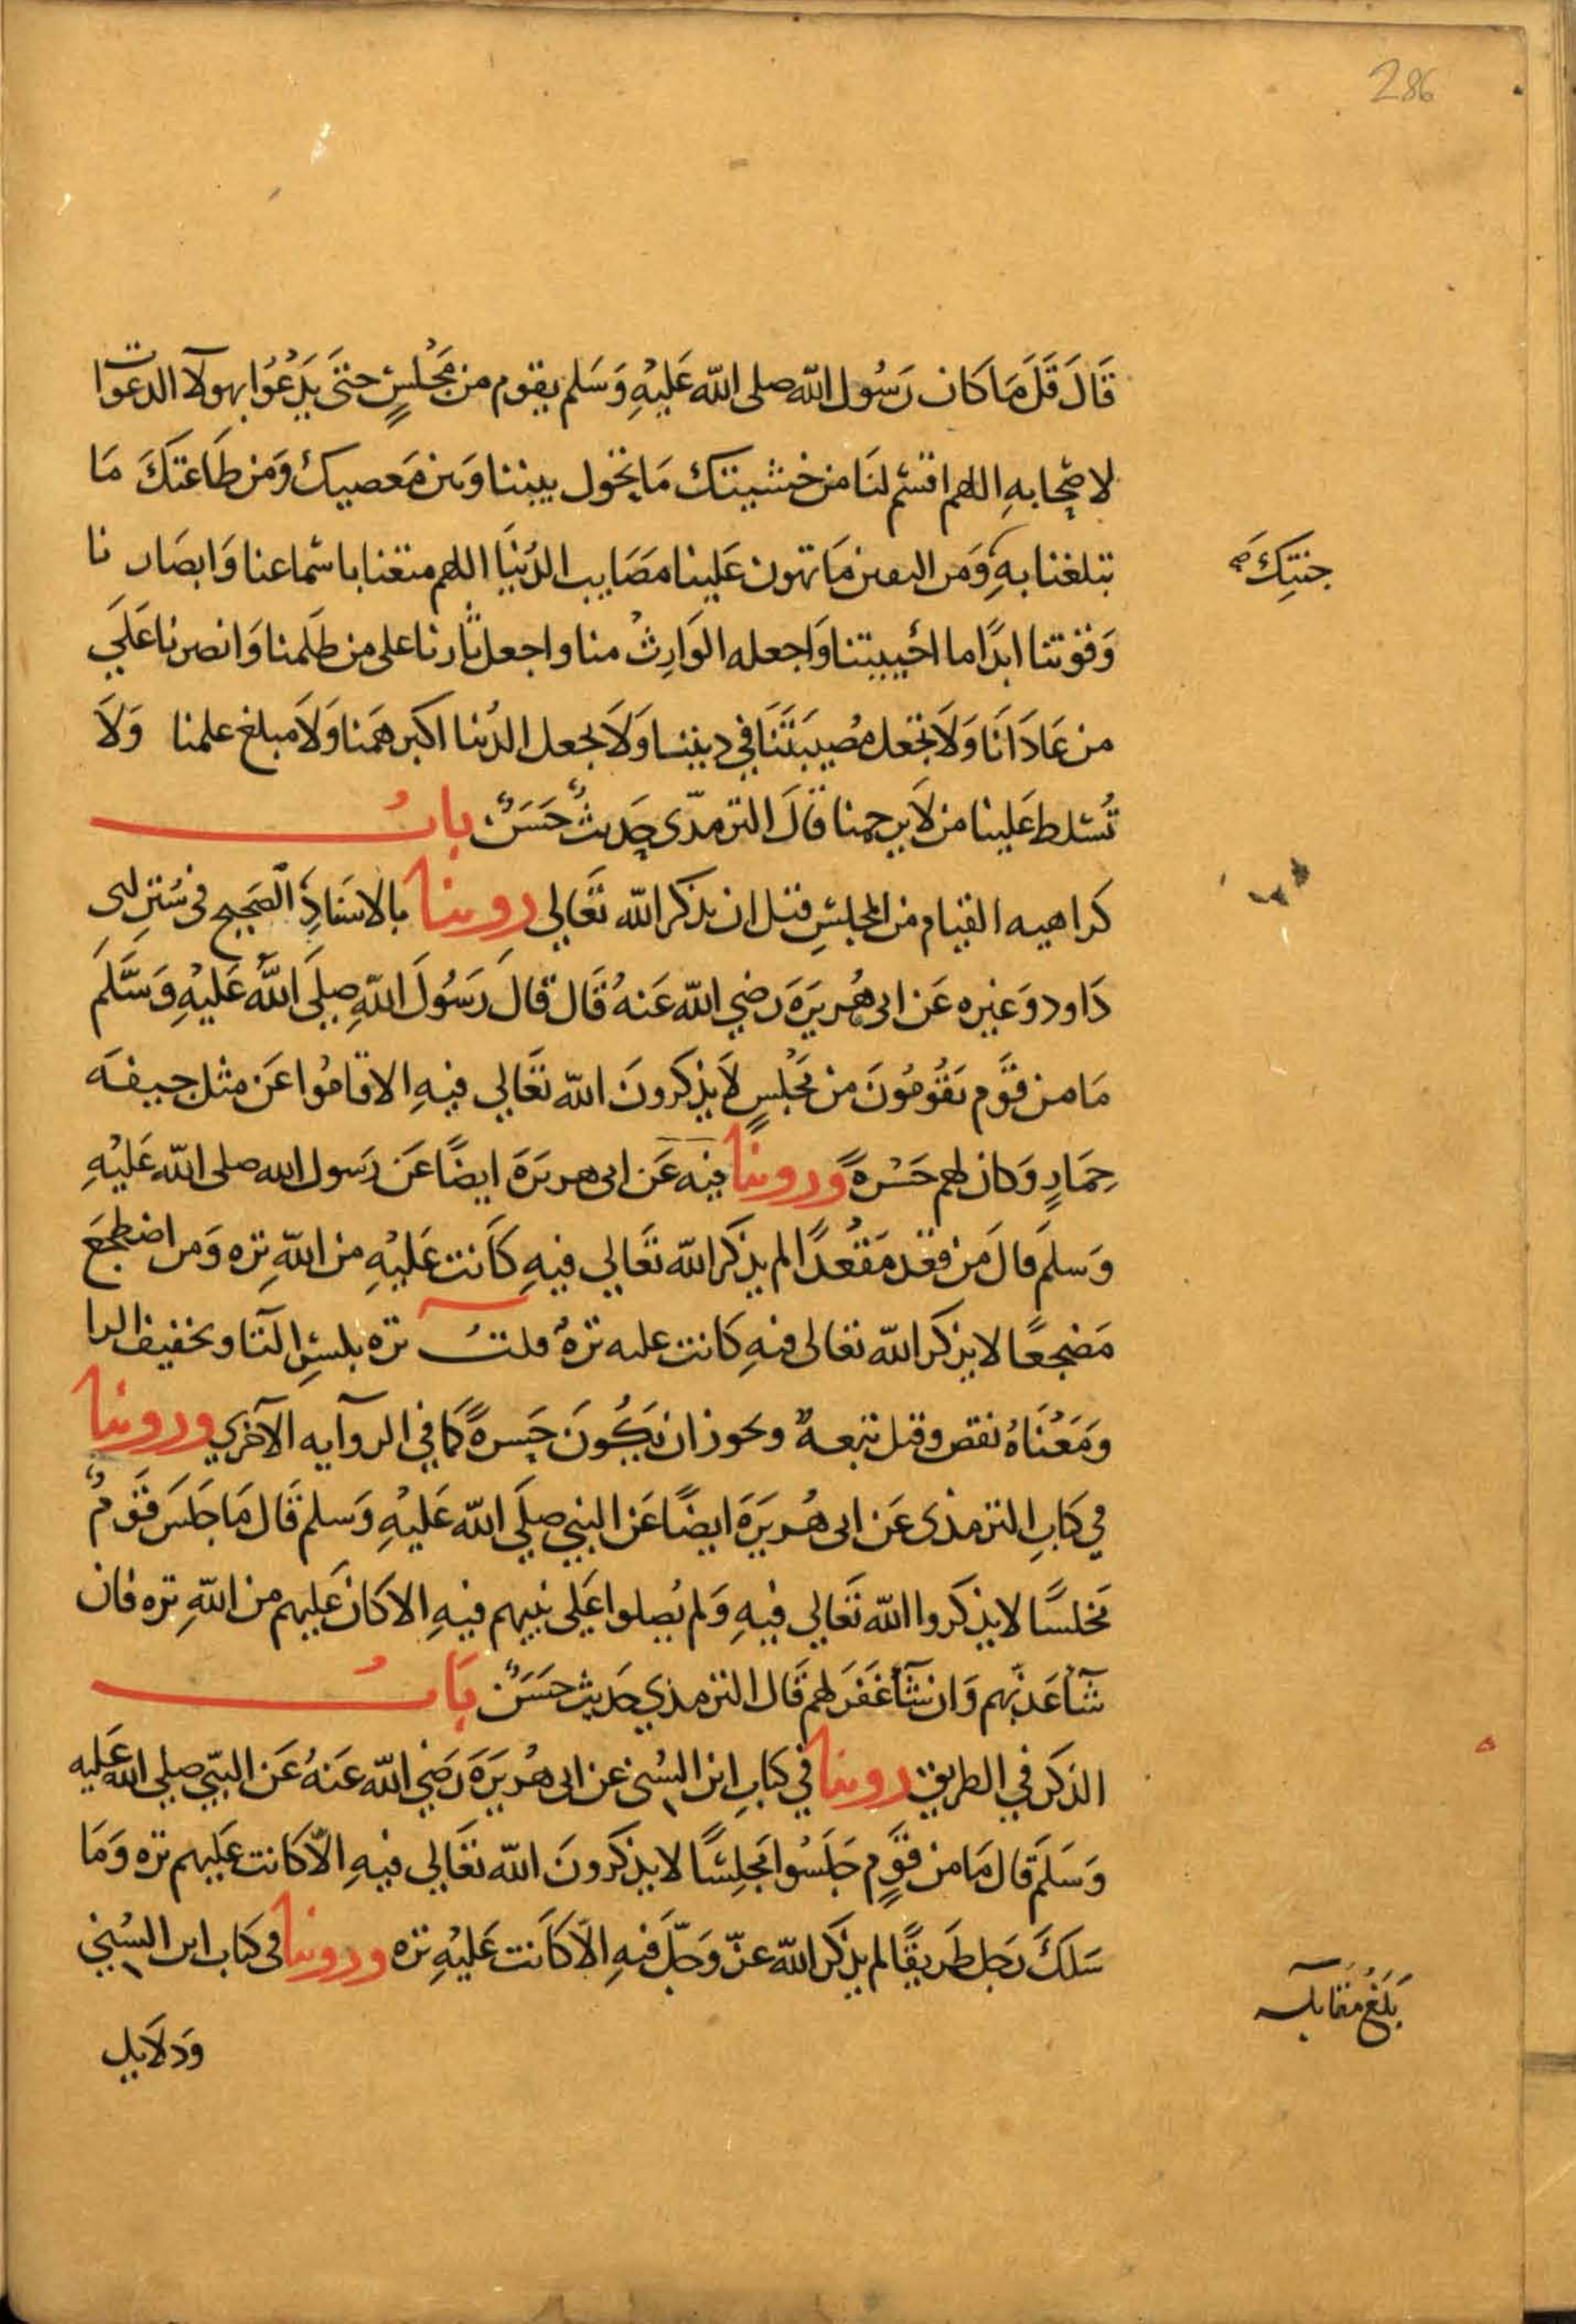 286
قَالَ قَلَّ مَا كَانَ رَسُول اللّه صلى اللّه عَلَيْهِ وَسَلم يقوم من مَجْلسٍ حتىَ يَدْعُوا بهولآ الدعوات
لاصْحَابهِ اللهم اقسْم لنَا من خشيتك مَا يحَول بيننا وَبين مَعصيك وَمن طَاعتكَ مَا
تبلغنا بهِ وَمَن اليقين مَا تهون عَلينا مَصَايب الدُنيَا اللهم متعنا باسْماعنا وَابصَارنا
جنتِكَ صح
وَقوتنا ابدًا ما احْييتنا وَاجعله الوَارِثْ منا واجعل ثارنا على من ظلَمنا وَانصرنا عَلَي
من عَادَانَا وَلَا تجَعل مصُيبَتَنَا في ديننا وَلَا تجعل الدُنيا اكبر هَمنا وَلَا مبلغ علمنا وَلَا
تُسَلط عَلينا من لَا يرحمنا قَالَ الترمذّى حَديثٌ حَسَنٌ بابُ
كَراهيه القيام من المجلسِ قبل ان يذكر اللّه تعَالي روينا بالاسَنادِ الصَحيح في سُنن ابى
دَاود وَغيره عَن ابى هُريرَةَ رضي اللّه عَنهُ قَال قالَ رَسُولَ اللّهِ صلَى اللَّه عَليْهِ وَسَّلَم
مَا من قَوم يَقُومُونَ من مَجْلسٍ لَا يذكرونَ اللّه تعَالي فيهِ الا قامُوا عَن مثل جيفَه
حِمَارٍ وَكان لهم حَسْرهً وروينا فيه عَن ابى هريرَةَ ايضًا عَن رَسول الله صلى اللّه عَليْهِ
وَسلَم قالَ مَن قعَد مَقعُدًا لم يذكر اللّه تعَالي فيهِ كَانت عَليْهِ من اللّهِ تره وَمن اضطجَعَ
مَضجعًا لا يذكر اللّه تعالى فيهِ كانت عليه ترهٌ قلتُ تره بكسْرِ التا وتخفيف الرا
ومَعْنَاهُ نقص وقيل تبعهٌ ويحوز ان يَكُونَ حَسرهً كمَا في الروايه الآخري وروينا
في كَتابِ الترمذى عَن ابى هُريَرَةَ ايضًا عَن النبي صلَي اللّه عَليْهِ وَسلم قَال مَا جَلَسَ قَومٌ
مَجلسًا لا يذكروا اللّه تعَالي فيهِ وَلم يُصلوا عَلي نبيهم فيهِ الا كَان عَليهم من اللّهِ تره فان
شآ عَذبهم وَان شآ غَفَر لهم قَال الترمذي حَديث حَسَنٌ بَابُ
الذكر في الطريق روينا في كتابِ ابن السُنى عن ابى هُريَرَةَ رَضي اللّه عَنهُ عَن النبّي صلي الله عَليه
وَسَلَم قال مَا من قَومٍ جَلَسُوا مَجلِسًا لا يذكرونَ اللّه تعَالي فيهِ الّا كَانت عَليهم تره وَمَا
سَلَكَ رَجل طَريقًا لم يذكر اللّه عَزّ وَجَلّ فيهِ الّا كَانت عَليْهِ تره وروينا في كتاب ابن السُني
بَلَغَ مقابله
وَدلَايل